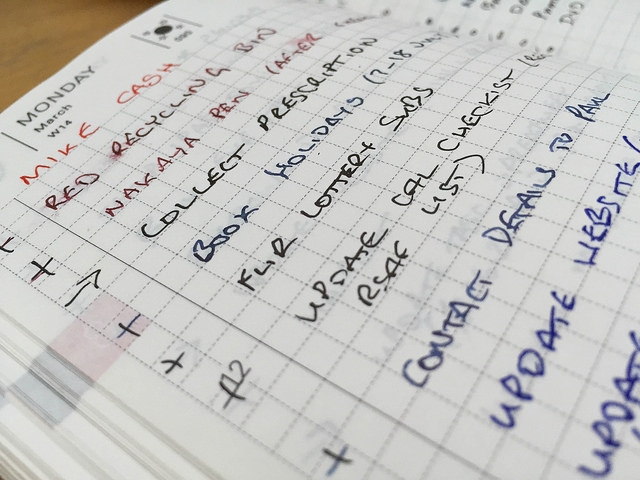 MONDAY
March
W14
MIKE CASH
RED RECYCLING BIN
NAKAYA PEN (AFTER
COLLECT PRESCRIPTION
BOOK HOLIDAYS (7-18 JUN
FLIR LOTTERY SUBS
UPDATE CAL CHECKLIST
LIST)
CONTACT DETAILS TO PAUL
UPDATE WEBSITE (
UPDATE